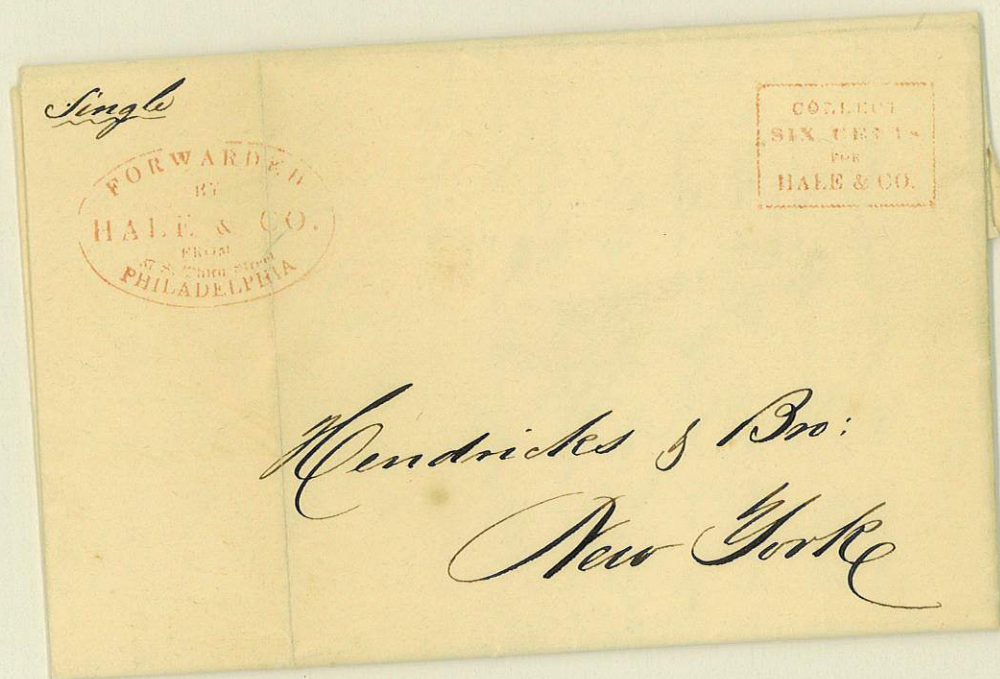 Single
FORWARDED
BY
HALE & CO.
FROM
37 S. Third Street
PHILADELPHIA
COLLECT
SIX CENTS
FOR
HALE & CO.
Hendricks & Bro:
New York